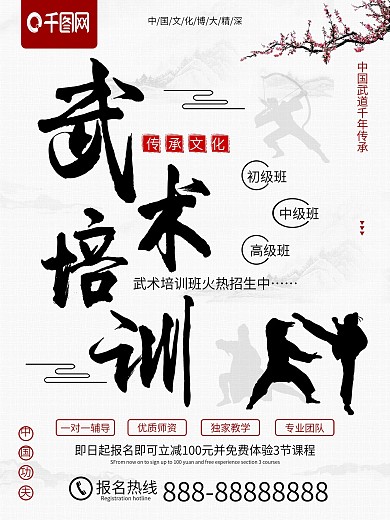 千图网
中/国/文/化/博/大/精/深
中国武道千年传承
武术培训
传承文化
初级班
中级班
高级班
武术培训班火热招生中……
一对一辅导
优质师资
独家教学
专业团队
中国功夫
即日起报名即可立减100元并免费体验3节课程
SFrom now on to sign up to 100 yuan and free experience section 3 courses
报名热线
Registration hotline
888-88888888